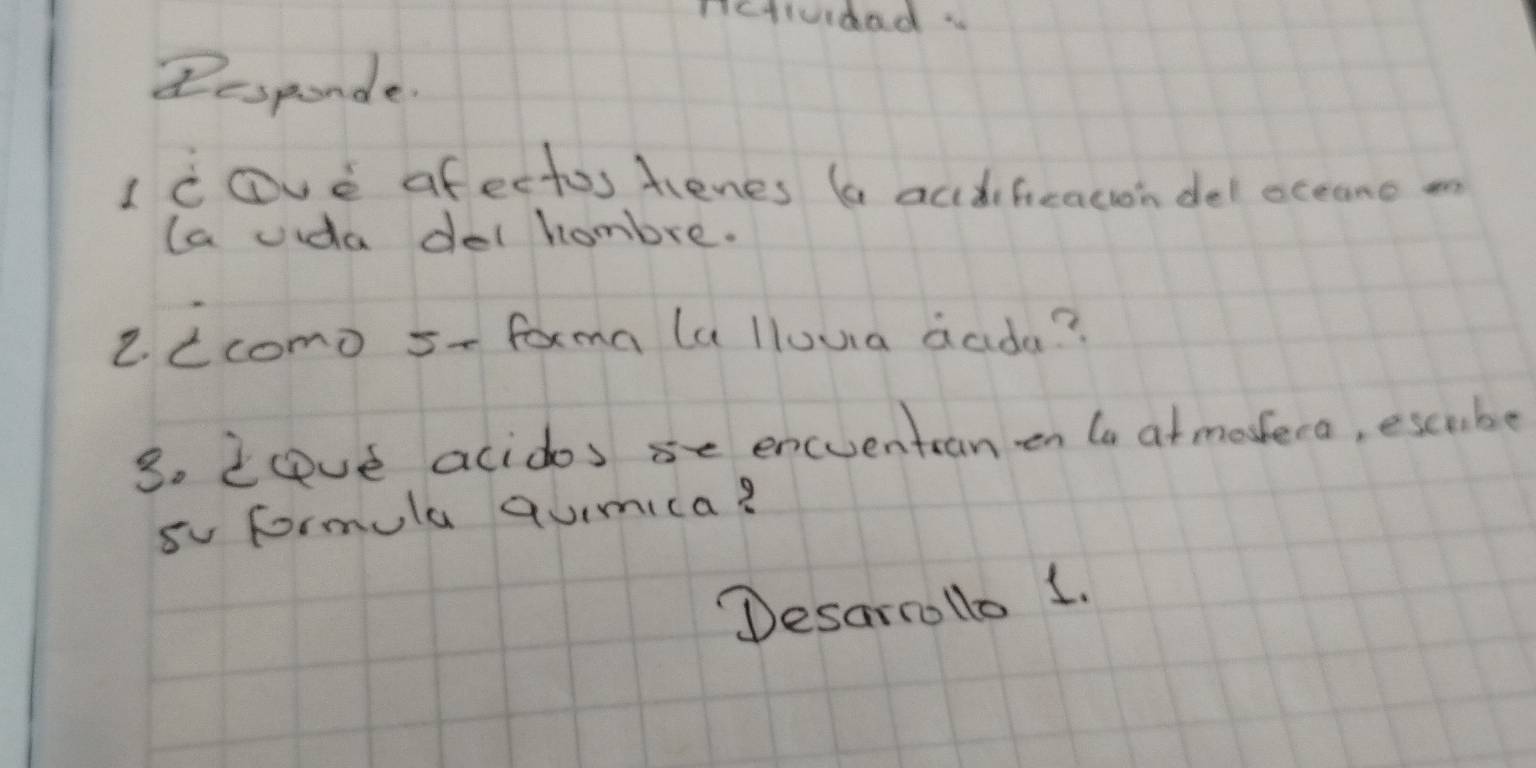 Actividad.
Responde.
1 ¿Qué afectos tienes la acidificación del oceano en
la vida del hombre.
2. ¿como se forma la lluvia ácida?
3. ¿Qué acidos se encuentran en la atmosfera, escribe
su formula quimica?
Desarrollo 1.